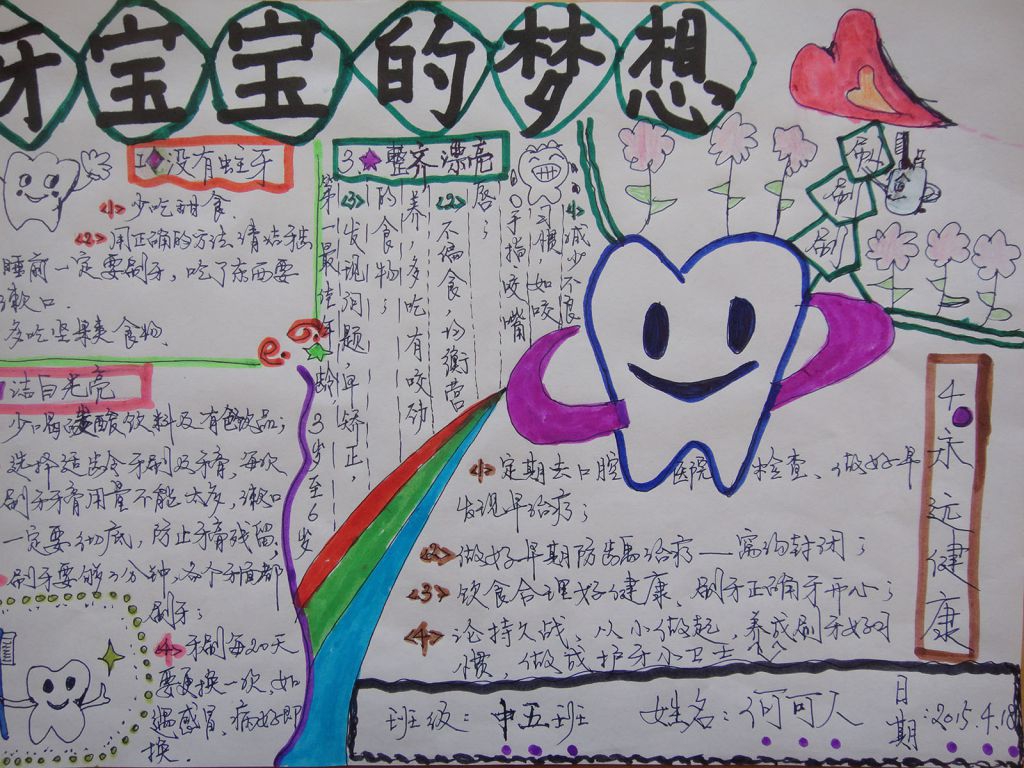 牙宝宝的梦想
1.没有蛀牙
<1>少吃甜食.
<2>用正确的方法清洁牙齿
睡前一定要刷牙,吃了东西要
漱口.
多吃坚果类食物.
洁白光亮
少喝碳酸饮料及有色饮品;
选择适龄牙刷及牙膏,每次
刷牙牙膏用量不能太多,漱口
一定要彻底,防止牙膏残留,
刷牙要够3分钟,各个牙面都
刷牙;
<4>牙刷每20天
要更换一次,如
遇感冒,病好即
换.
3.整齐漂亮
<4>减少不良
习惯,如咬
手指咬嘴
唇;
<2>不偏食,均衡营
养,多吃有咬劲
的食物;
<3>发现问题,早矫正,
第一最佳年龄3岁至6岁
刷
刷
刷
4.永远健康
<1>定期去口腔医院检查、做好早
发现早治疗;
<2>做好早期防龋治疗——窝沟封闭;
<3>饮食合理好健康、刷牙正确牙开心;
<4>论持久战、从小做起,养成刷牙好习
惯,做成护牙小卫士
班级:中五班
姓名:何可人
日期:2015.4.18